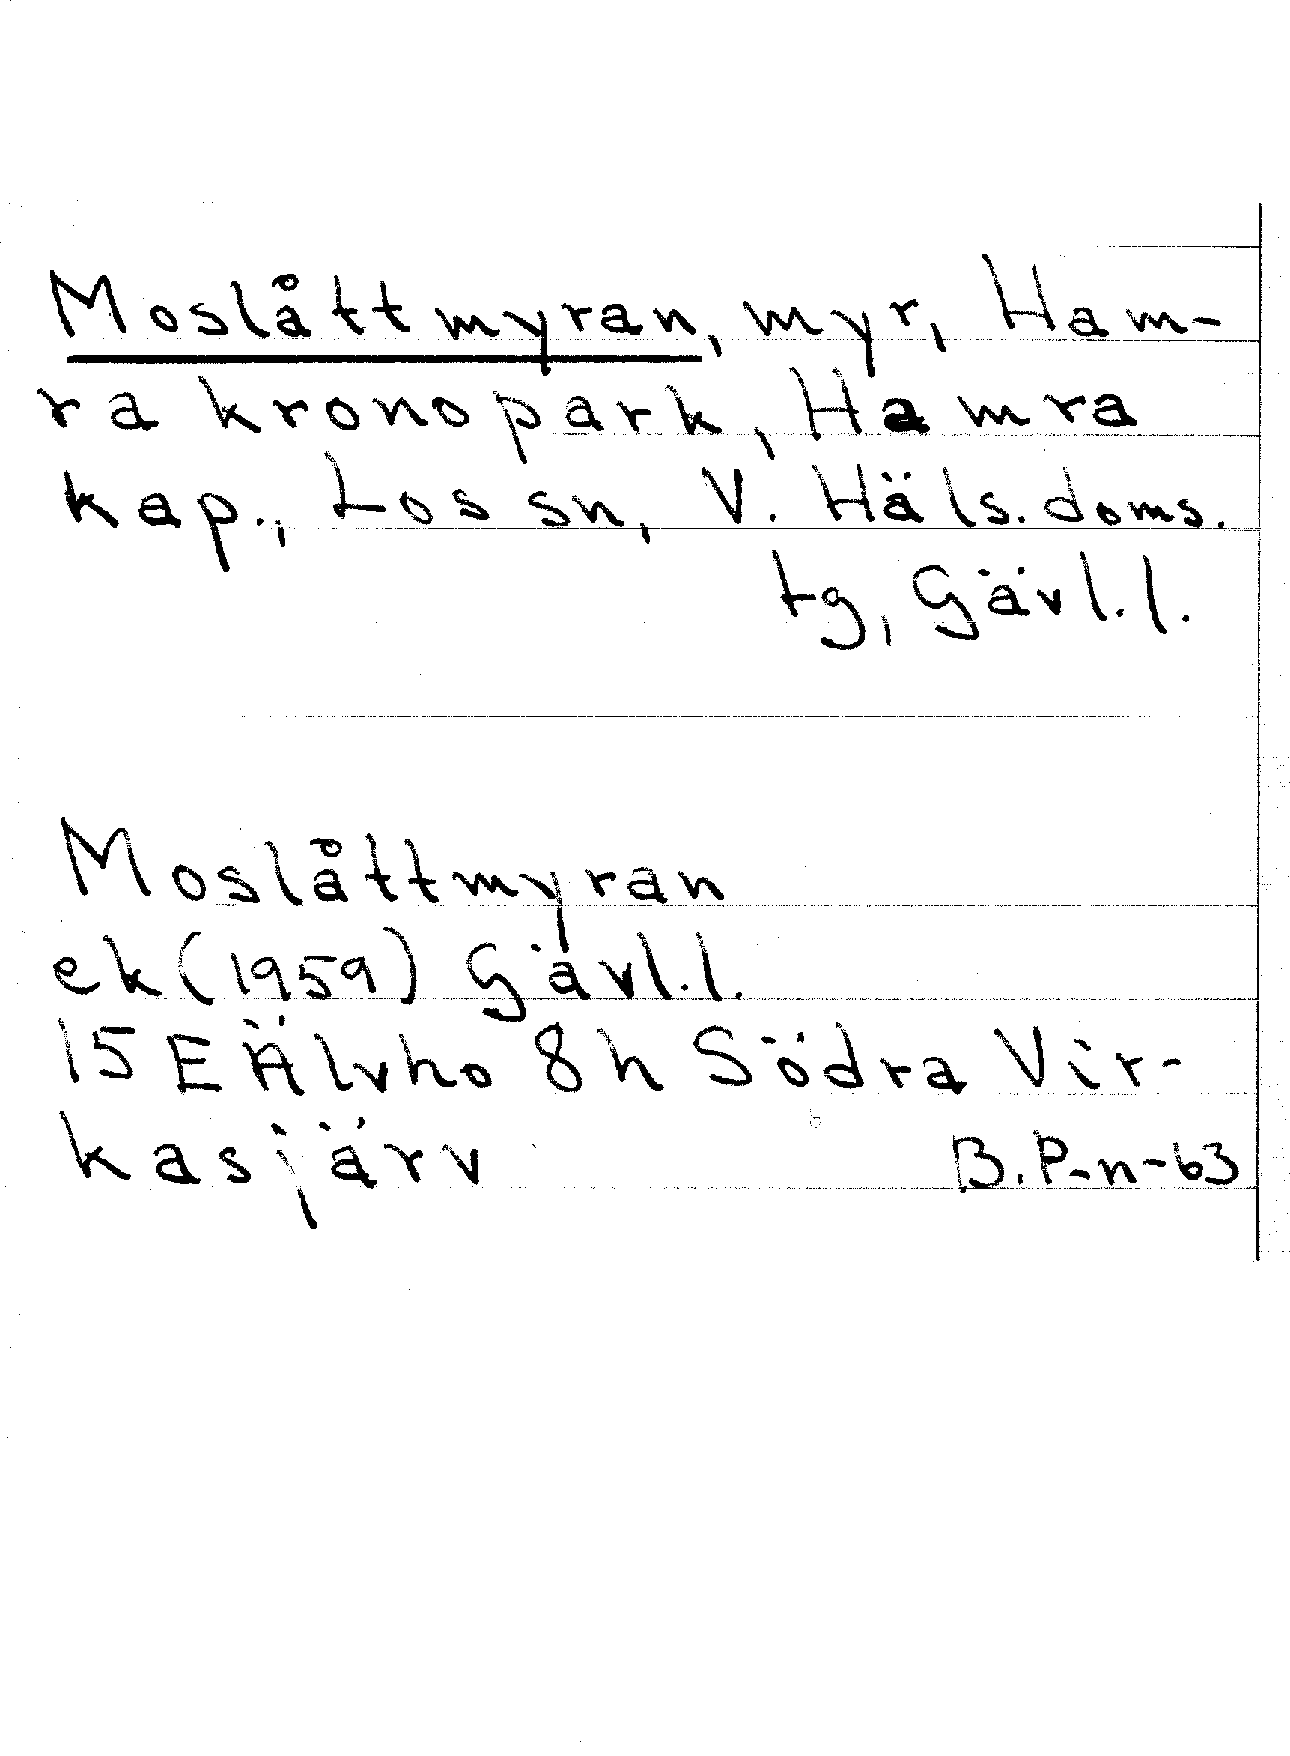 Moslåttmyran, myr, Ham-
ra kronopark, Hamra
kap., Los sn, V. Häls. doms.
tg, Gävl. l.
Moslåttmyran
ek (1959) Gävl. l.
15 E Älvho 8h Södra Vir-
kasjärv B. P-n-63